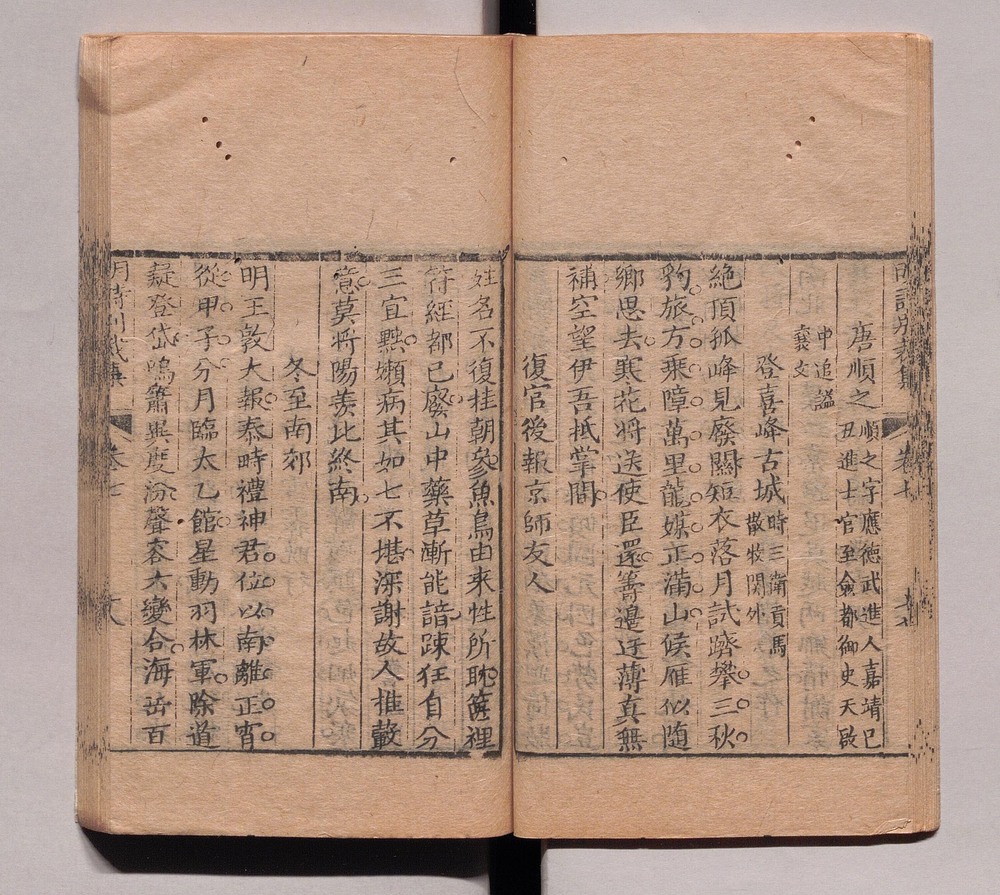 唐順之順之字應德武進人嘉靖己
丑進士官至僉都御史天啟
中追謚
襄文
登喜峰古城時三衛貢馬
散牧関外
絶頂孤峰見廢關短衣落月試躋攀三秋
豹旅方乘障萬里龍媒正滿山候雁似隨
鄉思去寒花將送使臣還籌邉迂薄真無
補空望伊吾抵掌間
復官後報京師友人
姓名不復挂朝參魚鳥由来性所耽篋裡
符經都已廢山中藥草漸能諳踈狂自分
三宜黜嬾病其如七不堪深謝故人推轂
意莫將陽羨比終南
冬至南郊
明王敦大報泰畤禮神君位以南離正宵
從甲子分月臨太乙館星動羽林軍除道
疑登岱鳴簫異度汾馨香大變合海岳百
卷七